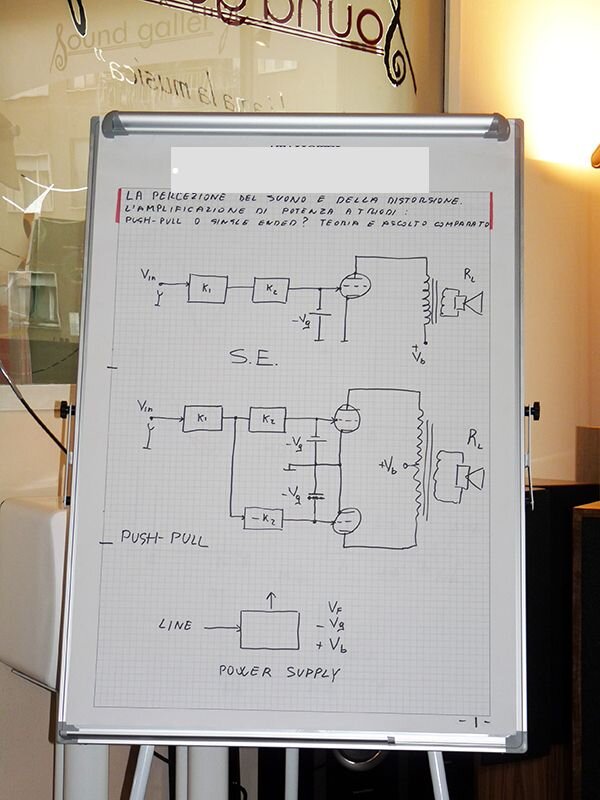 Sound gallery
la musica"
LA PERCEZIONE DEL SUONO E DELLA DISTORSIONE.
L'AMPLIFICAZIONE DI POTENZA A TRIODI:
PUSH-PULL O SINGLE ENDED? TEORIA E ASCOLTO COMPARATO
Vin K1 K2 RL
-Vg
+
Vb
S.E.
Vin K1 K2 RL
-Vg
+Vb
-Vg
-K2
PUSH-PULL
VF
LINE - Vg
+ Vb
POWER SUPPLY
-1-